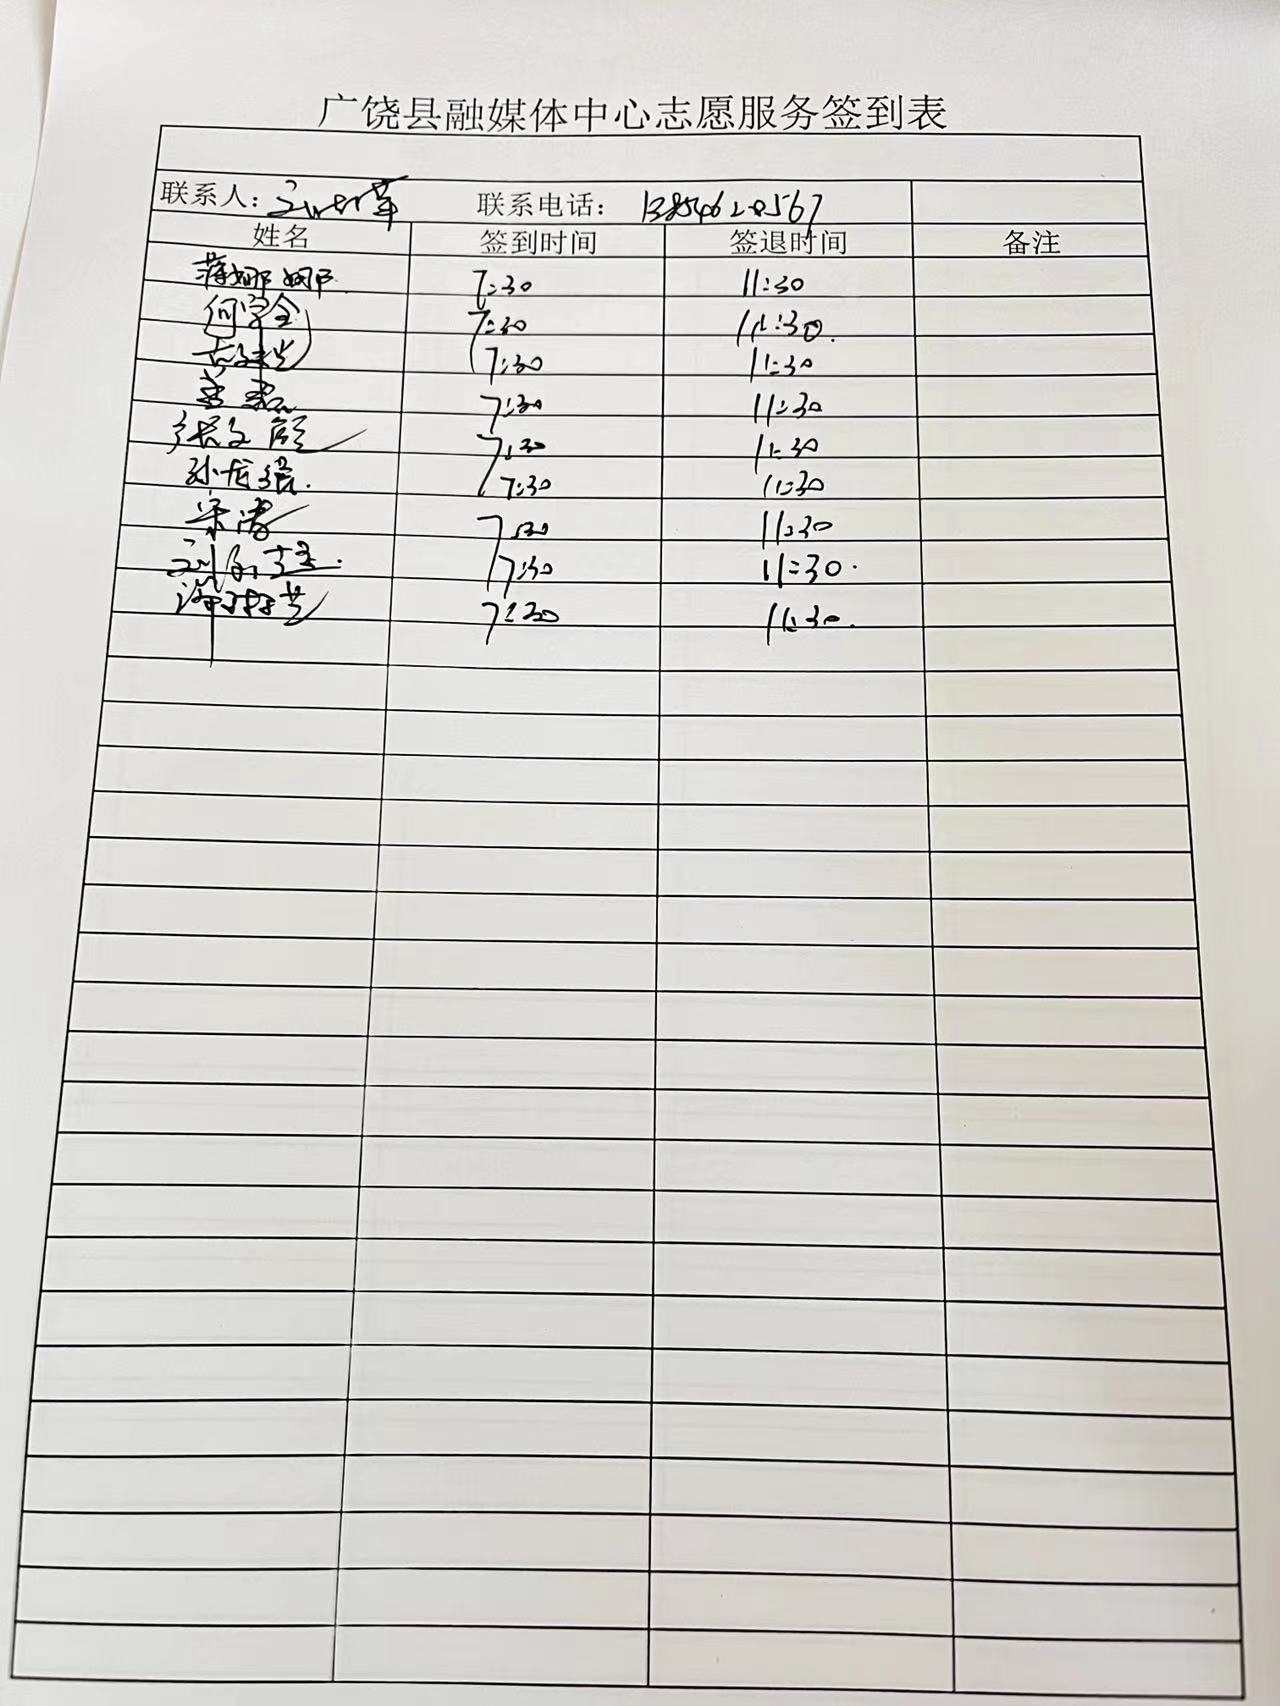 广饶县融媒体中心志愿服务签到表
联系人： 联系电话： 13854620567
姓名 签到时间 签退时间 备注
蒋娜娜 7:30 11:30
何宇全 7:30 11:30
7:30 11:30
7:30 11:30
张文 7:30 11:30
孙龙 7:30 11:30
宋涛 7:30 11:30
刘 7:30 11:30
7:30 11:30